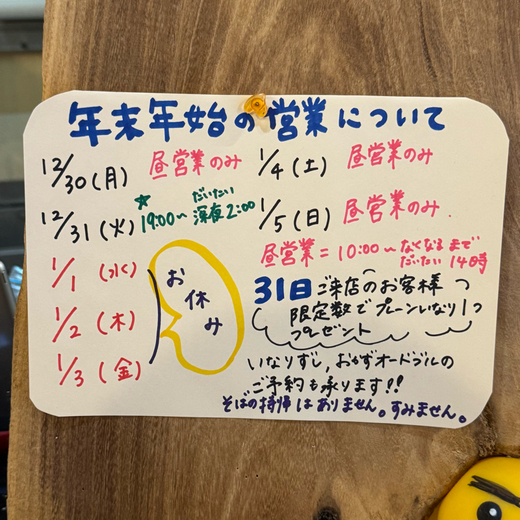 年末年始の営業について
12/30(月) 昼営業のみ
12/31(火) ★19:00〜 深夜2:00
だいたい
1/1(水)
1/2(木)
1/3(金)
お休み
1/4(土) 昼営業のみ
1/5(日) 昼営業のみ.
昼営業=10:00〜なくなるまで
だいたい 14時
31日ご来店のお客様
限定数でプレーンいなり1つ
プレゼント
いなりずし,おかずオードブルの
ご予約も承ります!!
そばの持帰はありません。すみません。